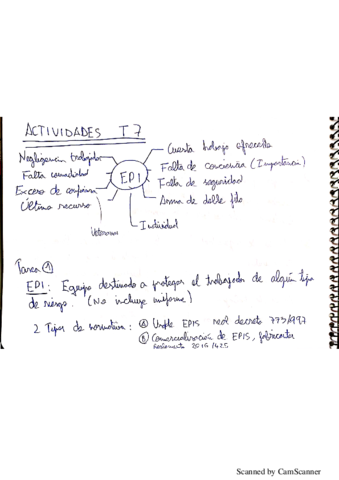 ACTIVIDADES T7
Negligencia trabajador
Falta comodidad
Exceso de confianza
Último recurso
Veterano
EPI
Cuesta trabajo
Falta de conciencia (Importancia)
Falta de seguridad
Arma de doble filo
Individual
Tarea ①
EPI: Equipo destinado a proteger el trabajador de algún tipo
de riesgo. (No incluye uniforme)
2 Tipos de normativa: Ⓐ EPIS real decreto 773/1997
Ⓑ Comercialización de EPIS, fabricante
Reglamento 2016/425
Scanned by CamScanner